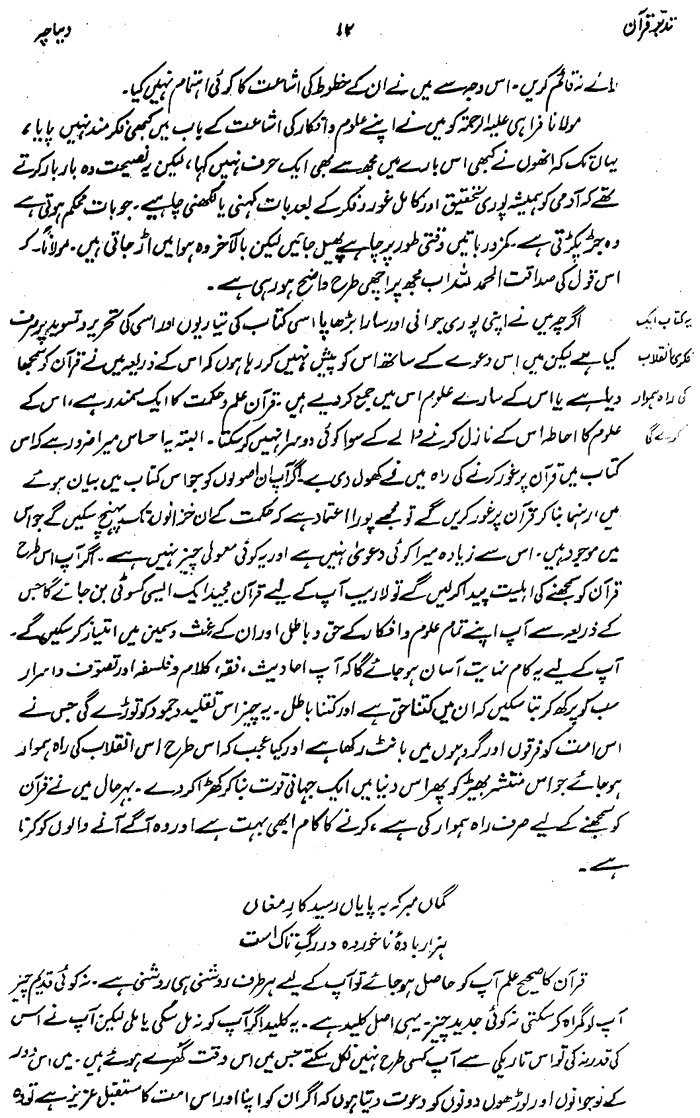 تدبّرِ قرآن ۴۲ دیباچہ
رائے نہ قائم کریں۔ اس وجہ سے میں نے ان کے خطوط کی اشاعت کا کوئی اہتمام نہیں کیا۔
مولانا فراہی علیہ الرحمۃ کو میں نے اپنے علوم و افکار کی اشاعت کے باب میں کبھی فکر مند نہیں پایا،
یہاں تک کہ انھوں نے کبھی اس بارے میں مجھ سے بھی ایک حرف نہیں کہا، لیکن یہ نصیحت وہ بار بار کرتے
تھے کہ آدمی کو ہمیشہ پوری تحقیق اور کامل غور و فکر کے بعد بات کہنی یا لکھنی چاہیے۔ جو بات محکم ہوتی ہے
وہ جڑ پکڑتی ہے۔ کمزور باتیں وقتی طور پر چاہے پھیل جائیں لیکن بالآخر وہ ہوا میں اڑ جاتی ہیں۔ مولاناؒ کے
اس قول کی صداقت الحمد للہ اب مجھ پر اچھی طرح واضح ہو رہی ہے۔
یہ کتاب ایک
فکری انقلاب
کی راہ ہموار
کرے گی
اگرچہ میں نے اپنی پوری جوانی اور سارا بڑھاپا اسی کتاب کی تیاریوں اور اسی کی تحریر و تسوید پر صرف
کیا ہے لیکن میں اس دعوے کے ساتھ اس کو پیش نہیں کر رہا ہوں کہ اس کے ذریعہ میں نے قرآن کو سمجھا
دیا ہے یا اس کے سارے علوم اس میں جمع کر دیے ہیں۔ قرآن علم و حکمت کا ایک سمندر ہے، اس کے
علوم کا احاطہ اس کے نازل کرنے والے کے سوا کوئی دوسرا نہیں کر سکتا۔ البتہ یہ احساس میرا ضرور ہے کہ اس
کتاب میں قرآن پر غور کرنے کی راہ میں نے کھول دی ہے۔ اگر آپ ان اصولوں کو جو اس کتاب میں بیان ہوئے
ہیں، رہنما بنا کر قرآن پر غور کریں گے تو مجھے پورا اعتماد ہے کہ حکمت کے ان خزانوں تک پہنچ سکیں گے جو اس
میں موجود ہیں۔ اس سے زیادہ میرا کوئی دعویٰ نہیں ہے اور یہ کوئی معمولی چیز نہیں ہے۔ اگر آپ اس طرح
قرآن کو سمجھنے کی اہلیت پیدا کر لیں گے تو لاریب آپ کے لیے قرآن مجید ایک ایسی کسوٹی بن جائے گا جس
کے ذریعہ سے آپ اپنے تمام علوم و افکار کے حق و باطل اور ان کے غث و سمین میں امتیاز کر سکیں گے۔
آپ کے لیے یہ کام نہایت آسان ہو جائے گا کہ آپ احادیث، فقہ، کلام و فلسفہ اور تصوّف و اسرار
سب کو پرکھ کر بتا سکیں کہ ان میں کتنا حق ہے اور کتنا باطل۔ یہ چیز اس تقلید و جمود کو توڑے گی جس نے
اس امت کو فرقوں اور گروہوں میں بانٹ رکھا ہے اور کیا عجب کہ اس طرح اس انقلاب کی راہ ہموار
ہو جائے جو اس منتشر بھیڑ کو پھر اس دنیا میں ایک جہانی قوت بنا کر کھڑا کر دے۔ بہرحال میں نے قرآن
کو سمجھنے کے لیے صرف راہ ہموار کی ہے، کرنے کا کام ابھی بہت ہے اور وہ آگے آنے والوں کو کرنا
ہے۔
گماں مبر کہ بہ پایاں رسید کارِ مغاں
ہزار بادۂ ناخوردہ در رگِ تاک است
قرآن کا صحیح علم آپ کو حاصل ہو جائے تو آپ کے لیے ہر طرف روشنی ہی روشنی ہے۔ نہ کوئی قدیم چیز
آپ کو گمراہ کر سکتی نہ کوئی جدید چیز۔ یہی اصل کلید ہے۔ یہ کلید اگر آپ کو نہ مل سکی یا ملی لیکن آپ نے اس
کی قدر نہ کی تو اس تاریکی سے آپ کسی طرح نہیں نکل سکتے جس میں اس وقت گھرے ہوئے ہیں۔ میں اس دور
کے نوجوانوں اور بوڑھوں دونوں کو دعوت دیتا ہوں کہ اگر ان کو اپنا اور اس امت کا مستقبل عزیز ہے تو وہ